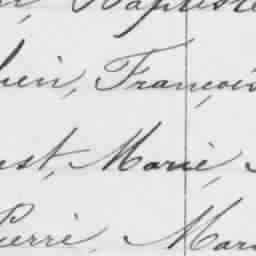 Baptiste
François
Marie,
Pierre, Mar